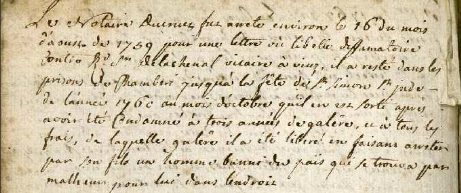 Le Notaire Ducruez fut areté environ le 16e du mois
d'aoust de 1759 pour une lettre ou libelle diffamatoire
contre Rd Sr Delachenal vicaire à viuz, il a resté dans les
prisons de Chamberi jusqu'à la fête de St Simon St jude
de l'année 1760 au mois d'octobre qu'il en est sorti apres
avoir été Condamné à trois années de galère, et à tous les
frais, de laquelle galère il a été libéré en faisant arreter
par son fils un homme bannit des païs qui se trouva par
malheur pour lui dans l'endroit